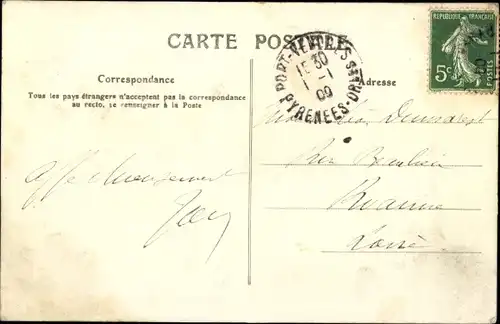 CARTE POSTALE
RÉPUBLIQUE FRANÇAISE
5c
POSTES
PORT-VENDRES
15 30
1 -1
09
PYRENEES-ORLES
Correspondance
Tous les pays étrangers n'acceptent pas la correspondance
au recto, se renseigner à la Poste
Adresse
Demarest
Rue Beaulieu
Roanne
Loire
Affectueusement